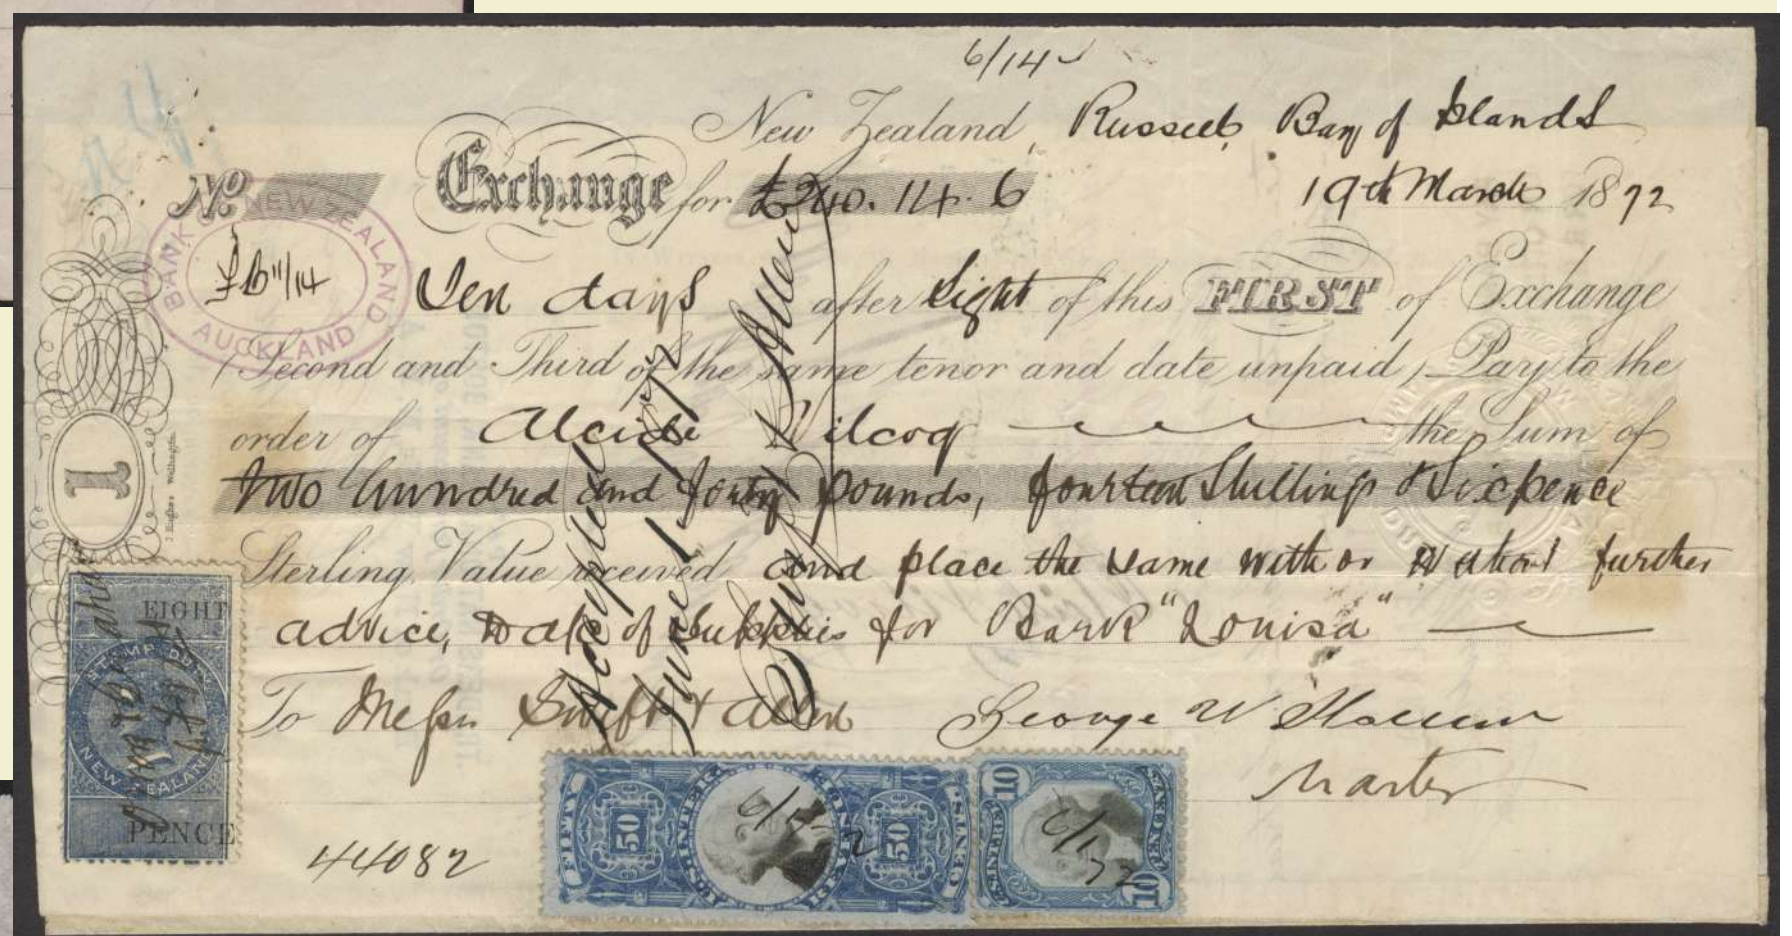 6/14
New Zealand, Russell, Bay of Islands
No. Exchange for £240.14.6 19th March 1872
BANK OF NEW ZEALAND AUCKLAND
Ten days after Sight of this FIRST of Exchange
(Second and Third of the same tenor and date unpaid) Pay to the
order of Alcide Vilcoq the Sum of
Two hundred and forty pounds, fourteen Shillings & Sixpence
Sterling Value received and place the same with or without further
advice, to a/c of Supplies for Bark "Louisa"
To Messrs Swift & Allen George W
Master
Accepted
June 1 1872
Swift & Allen
1
EIGHT
STAMP DUTY
NEW ZEALAND
PENCE
44082
FIFTY CENTS
U.S. INTER. REVENUE
50 50
6/1 72
10 10
U.S. INTER. REV.
TEN CENTS
6/1 72